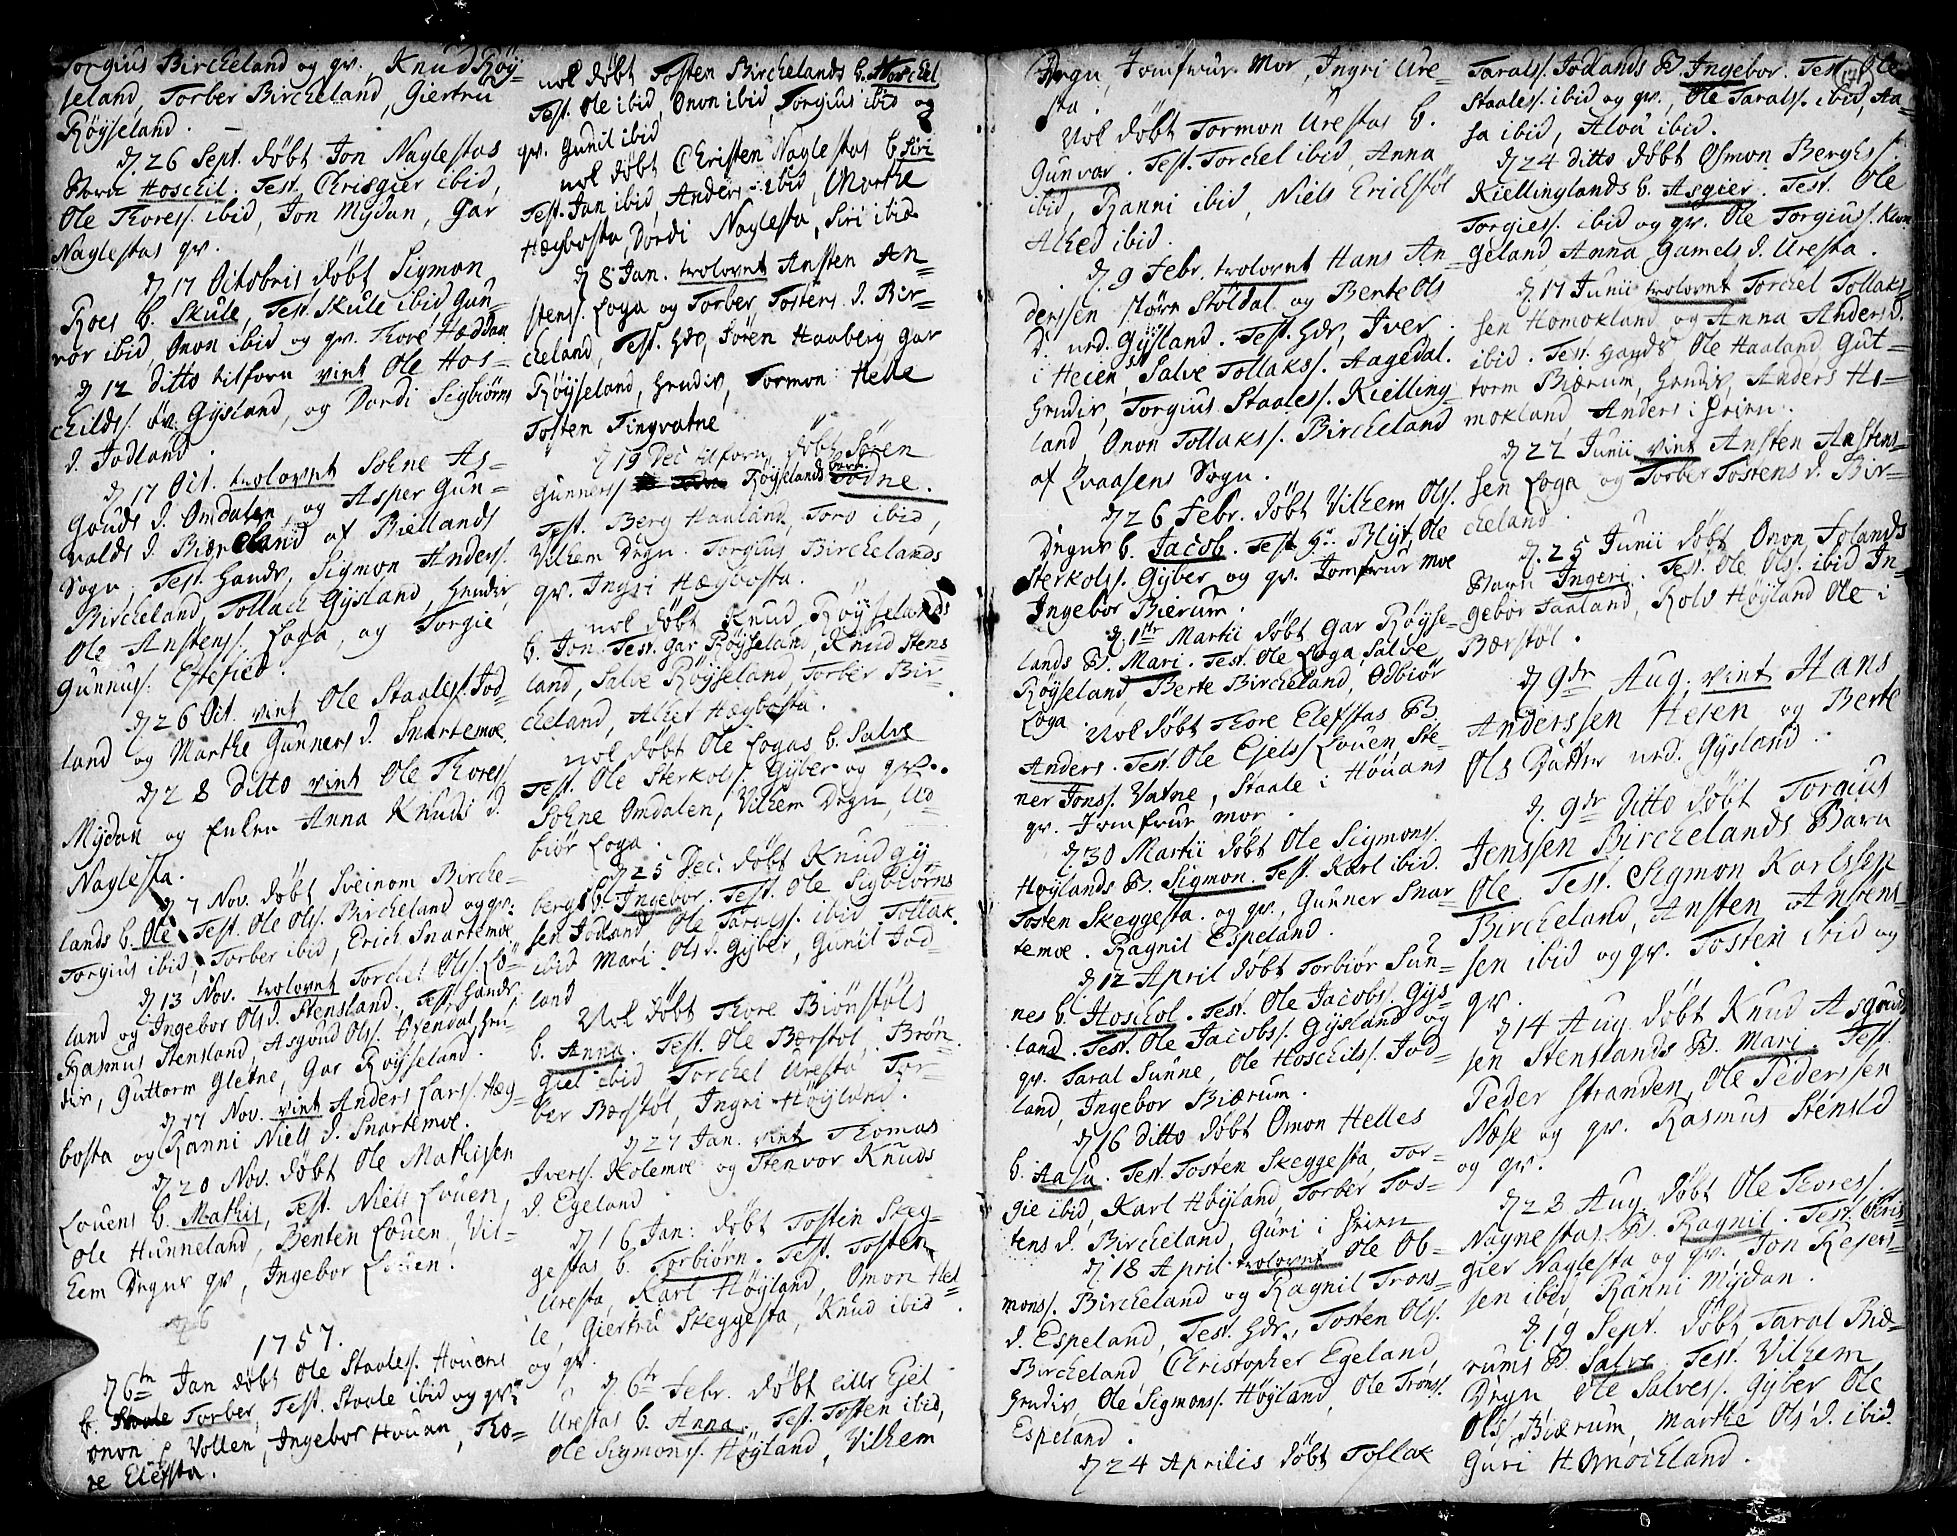 Torgius Bircheland og qv. Knud Röÿ-
seland, Torber Bircheland, Giertru
Röÿseland.
d 26 Sept. döbt Jon Naglestas
Barn Hoschil. Test. Chrisgier ibid,
Ole Thoress. ibid, Jon Mÿdan, Gar
Naglestas qv.
d 17 Octobris döbt Sigmon
Roes b. Skule, Test. Skule ibid, Gun-
vor ibid, Onon ibid og qv. Thore Heddan
d 12 ditto tilforn vint Ole Hos-
childs. öv. Gÿsland, og Dordi Sigbiörns
d. Jodland.
d 17 Oct. trolovnt Sohne As-
gouds d. Omdalen, og Asper Gun-
valds d. Bircheland af Biellands
Sogn, Test. Hands, Sigmon Anders.
Bircheland, Tollach Gÿsland, Hendiv
Ole Anstens. Loga, og Torgie
Gunnuss. Eftesied.
d 26 Oct. vint Ole Staaless. Jod-
land og Marthe Gunners d. Snartemoe
d 28 ditto vint Ole Thoress.
Mÿdan og Enken Anna Knuds d.
Naglesta.
d 7 Nov. döbt Sveinom Birche-
lands b. Ole, Test. Ole Ols. Bircheland og qv.
Torgius ibid, Torber ibid, Erich Snartemoe
d 13 Nov. trolovnt Torchel Ols. Lö-
land og Ingebor Ols d. Stensland. Test. hands,
Rasmus Stensland, Asgoud Ols. Osendal, hen-
div, Guttorm Gletne, Gar Roÿseland.
d 17 Nov. vint Anders Larss. Hæg-
bosta og Ranni Niels d. Snartemoe.
d 20 Nov. döbt Ole Mathisen
Louens b. Mathis, Test. Niels Louen,
Ole Hunneland, Benten Louen, Vil-
hem Degns qv, Ingebor Louen.
1757.
d 6te Jan döbt Ole Staaless. Houans
b. Torber, Test. Staale ibid og qv.
Onon i Vollen, Ingebor Houan, Tho-
re Elefsta.
nok döbt Tosten Birchelands b. Torchel
Test. Ole ibid, Onon ibid, Torgius ibid og
qv. Gunil ibid
nok döbt Christen Naglestas b. Siri
Test. Jan ibid, Anders ibid, Marthe
Hægbosta, Dordi Naglesta, Siri ibid.
d 8 Jan. trolovnt Ansten An-
stenss. Loga og Torber Tostens d. Bir-
cheland, Test. hde, Sören Haaberg Gar
Röÿseland, hendiv, Tormon Helle
Tosten Tingvatne
d 19 Dec tilforn döbt Sören
Gunners Röÿselands barn Todne.
Test. Berg Haaland, Toro ibid,
Vilhem Degn. Torgius Birchelands
qv. Ingri Hægbosta.
nok döbt Knud Röÿselands
b. Jon. Test. Gar Röÿseland, Knud Stens-
land, Salve Röÿseland, Torber Bir-
cheland, Alhet Hægbosta.
nok döbt Ole Logas b. Salve
Test. Ole Sterkols. Gÿber og qv.
Sohne Omdalen, Vilhem Degn, Od-
biör Loga.
d 25 Dec. döbt Knud Gÿ-
bergs b. Ingebor. Test. Ole Sigbiörns
sen Jodland Ole Taralss. ibid Tollak
ibid Mari Ols d. Gÿber, Gunil Jod-
land
Nok döbt Thore Biönstöls
b. Anna. Test. Ole Bærstöl, Brön-
giel ibid Torchel Uresta Tor-
ber Bærstöl, Ingri Höÿland.
d 27 Jan. vint Thomas
Iverss. Kolemoe og Stenvor Knuds
d. Egeland
d 16 Jan: döbt Tosten Skeg-
gestas b. Torbiörn. Test. Tosten
Uresta, Karl Höÿland, Omon Hel-
le, Giertru Skeggesta, Knud ibid
og qv.
d 6te Febr. döbt eller Ejel
Urestas b. Anna. Test. Tosten ibid,
Ole Sigmons. Höÿland, Vilhem
Degn, Jomfrue Mor, Ingri Ure-
sta.
Nok döbt Tormon Urestas b.
Gunvor. Test. Torchel ibid, Anna
ibid, Ranni ibid, Niels Erichstöl
Alhed ibid.
d 9 Febr. trolovnt Hans An-
dersen störn Stöldal og Berte Ols
d. ned. Gÿsland. Test. hdr, Iver
i Heien, Salve Tollakss. Aagedal.
hendiv, Torgius Staaless. Kielling-
land, Onon Tollakss. Bircheland
af Qvaasens Sogn.
d 26 Febr. döbt Vilhem Ols.
Degns b. Jacob. Test. Hr. Blÿt, Ole
Sterkols. Gÿber og qv. Jomfrue moe
Ingebor Bierum.
d 1ste Martii döbt Gar Röÿse-
lands B. Mari. Test. Ole Loga, Salve
Röÿseland, Berte Bircheland, Odbiör
Loga.
Nok döbt Thore Elefstas B.
Anders. Test. Ole Ejels. Louen, Ste-
ner Jonss. Vatne, Staale i Höuans
qv. Jomfrue mor.
d 30 Martii döbt Ole Sigmons.
Höÿlands B. Sigmon. Test. Karl ibid.
Tosten Skeggesta. og qv, Gunner Snar-
temoe. Ragnil Espeland.
d 12 April döbt Torbiör Sun-
nes b. Hoschol. Test. Ole Jacobs. Gÿs-
land. Test. Ole Jacobss. Gÿsland og
qv. Taral Sunne, Ole Hoschilss. Jod-
land, Ingebor Biærum.
d 16 ditto döbt Omon Helles
b. Aasa. Test. Tosten Skeggesta, Tor-
gie ibid, Karl Höÿland, Torber Tos-
tens d. Bircheland, Guri i Heien
d 18 April trolovnt Ole Ob-
mons. Bircheland og Ragnil Trons-
d. Espeland, Test. hdr. Tosten Ols.
Bircheland, Christopher Egeland,
hendiv, Ole Sigmons. Höÿland, Ole Trons.
Espeland.
d 24 Aprilis döbt Tollak
Taralss. Jodlands B. Ingebor. Test. Ole
Staaless. ibid og qv., Ole Taralss. ibid, Aa-
sa ibid, Aloü ibid.
d 24 ditto döbt Osmon Berghs.
Kiellinglands b. Asgier. Test. Ole
Torgies. ibid og qv. Ole Torgiuss. Klun-
geland Anna Gamels d. Uresta.
d 17 Junii trolovnt Torchel Tollaks-
sen Homokland og Anna Anders d.
ibid. Test. hands Ole Haaland, Gut-
torm Biærum, hendiv, Anders Ho-
mokland, Anders i Heien.
d 22 Junii vint Ansten Anstens-
sen Loga og Torber Tostens d. Bir-
cheland.
d. 25 Junii döbt Onon Tolands
Barn Ingeri. Test. Ole Ols. ibid In-
gebor Faaland, Rolv Höÿland Ole i
Bærstöl.
d 9de Aug. vint Hans
Anderssen Heien og Berte
Ols Datter ned. Gÿsland.
d. 9de ditto döbt Torgius
Jenssen Birchelands Barn
Ole Test. Sigmon Karlssen
Bircheland, Ansten Anstens-
sen ibid og qv. Tosten ibid og
qv.
d 14 Aug. döbt Knud Asgouds
sen Stenslands B. Mari. Test.
Peder Stranden, Ole Pederssen
Næse og qv. Rasmus Stensld
og qv.
d 28 Aug. döbt Ole Thoress.
Nagnestas B. Ragnil. Test. Kris-
gier Naglesta og qv. Jon Rejers-
sen ibid Ranni Mÿdan.
d. 19 Sept. döbt Taral Biæ-
rums B. Salve. Test. Vilhem
Degn Ole Salvess. Gÿber Ole
Ols. Biærum, Marthe Ols d. ibid
Guri Homockland.